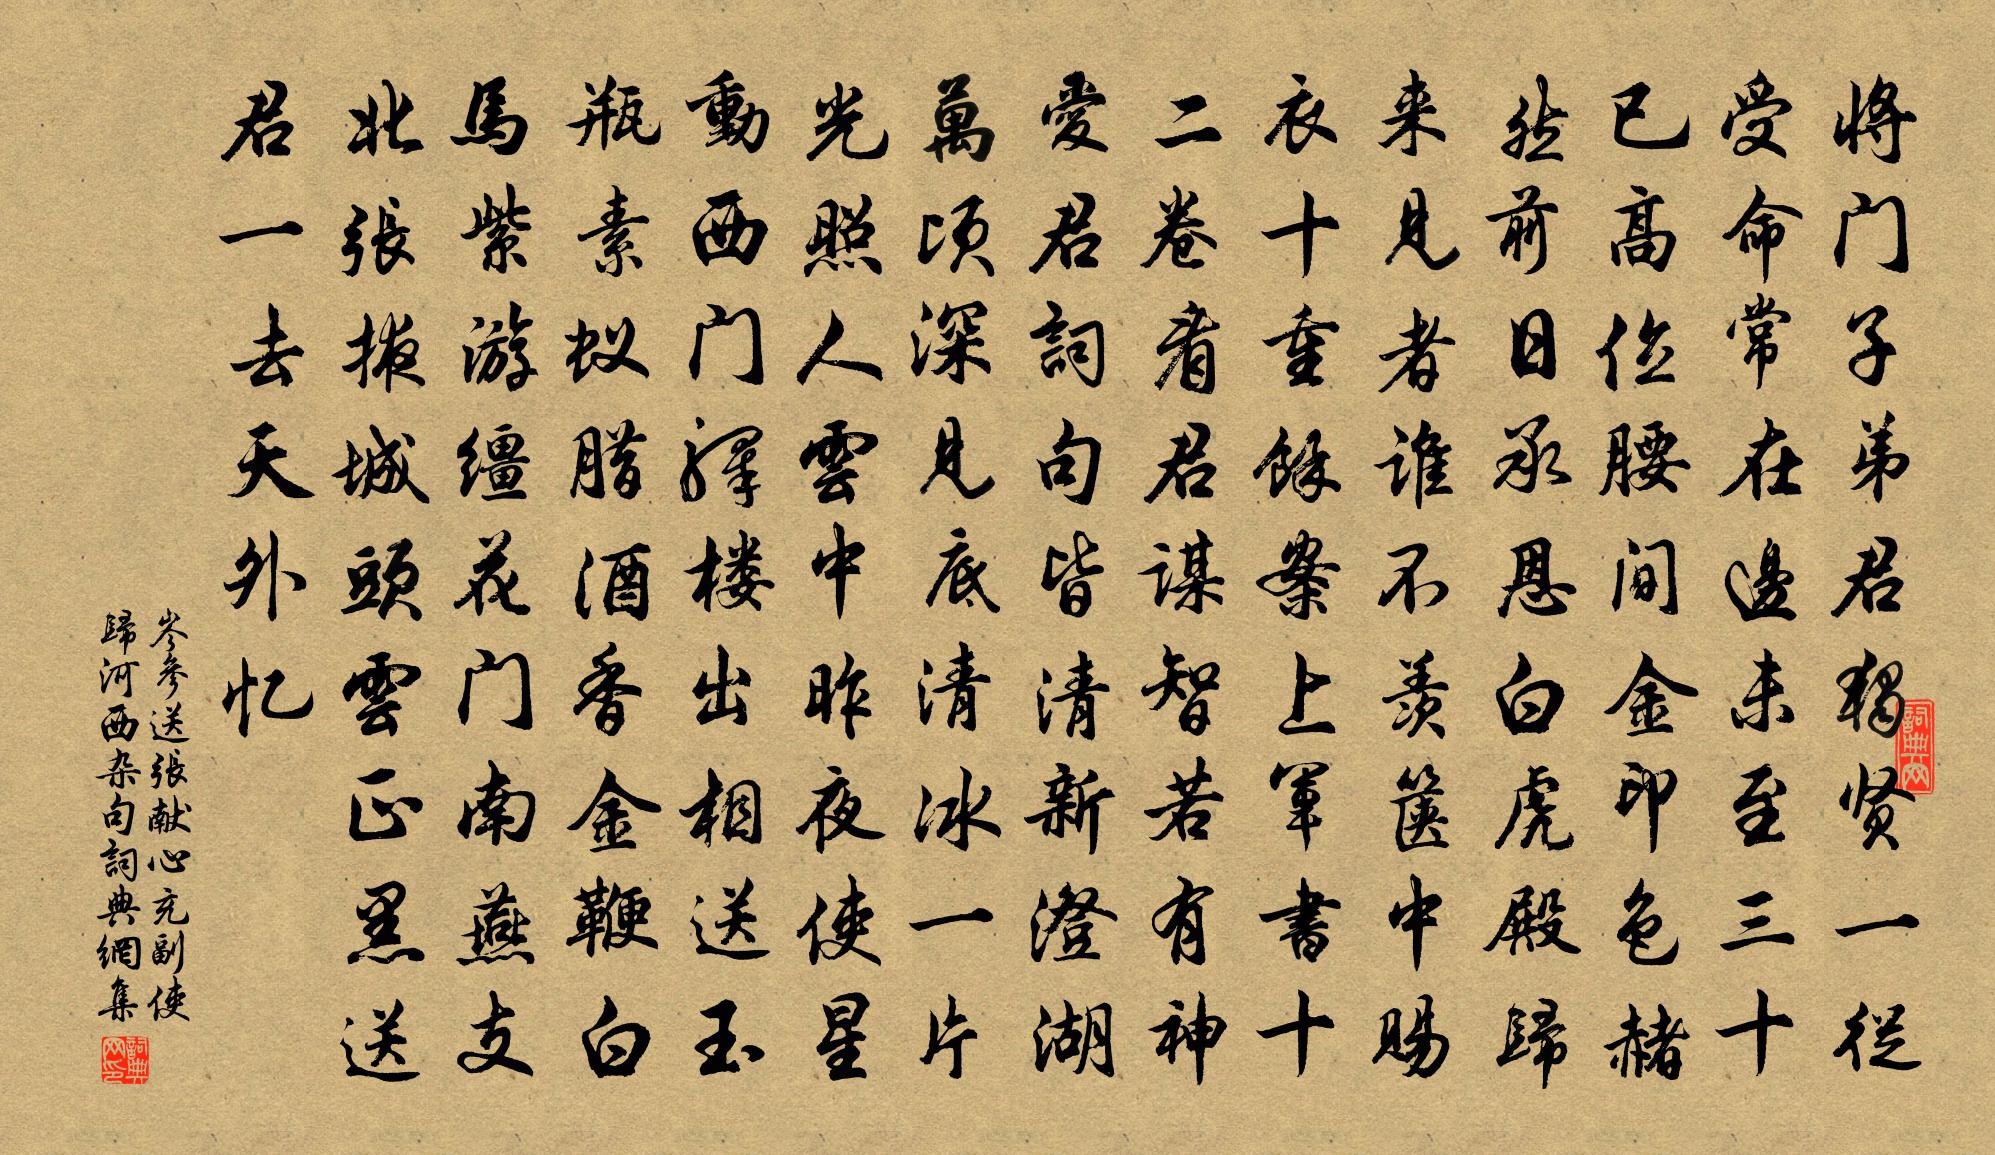 将门子弟君獨贤一從
受命常在邊未至三十
已高位腰间金印色赭
然前日承恩白虎殿歸
来見者谁不羡箧中赐
衣十重餘案上军書十
二卷看君谋智若有神
愛君詞句皆清新澄湖
萬顷深見底清冰一片
光照人雲中昨夜使星
動西门驛楼出相送玉
瓶素蚁腊酒香金鞭白
馬紫游缰花门南燕支
北張掖城頭雲正黑送
君一去天外忆
岑參送張献心充副使
歸河西杂句詞典網集
詞典网
詞典网印